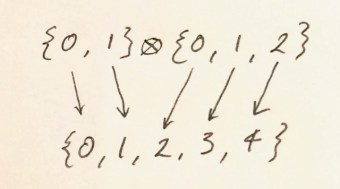 {0, 1}⊗{0, 1, 2}
{0, 1, 2, 3, 4}